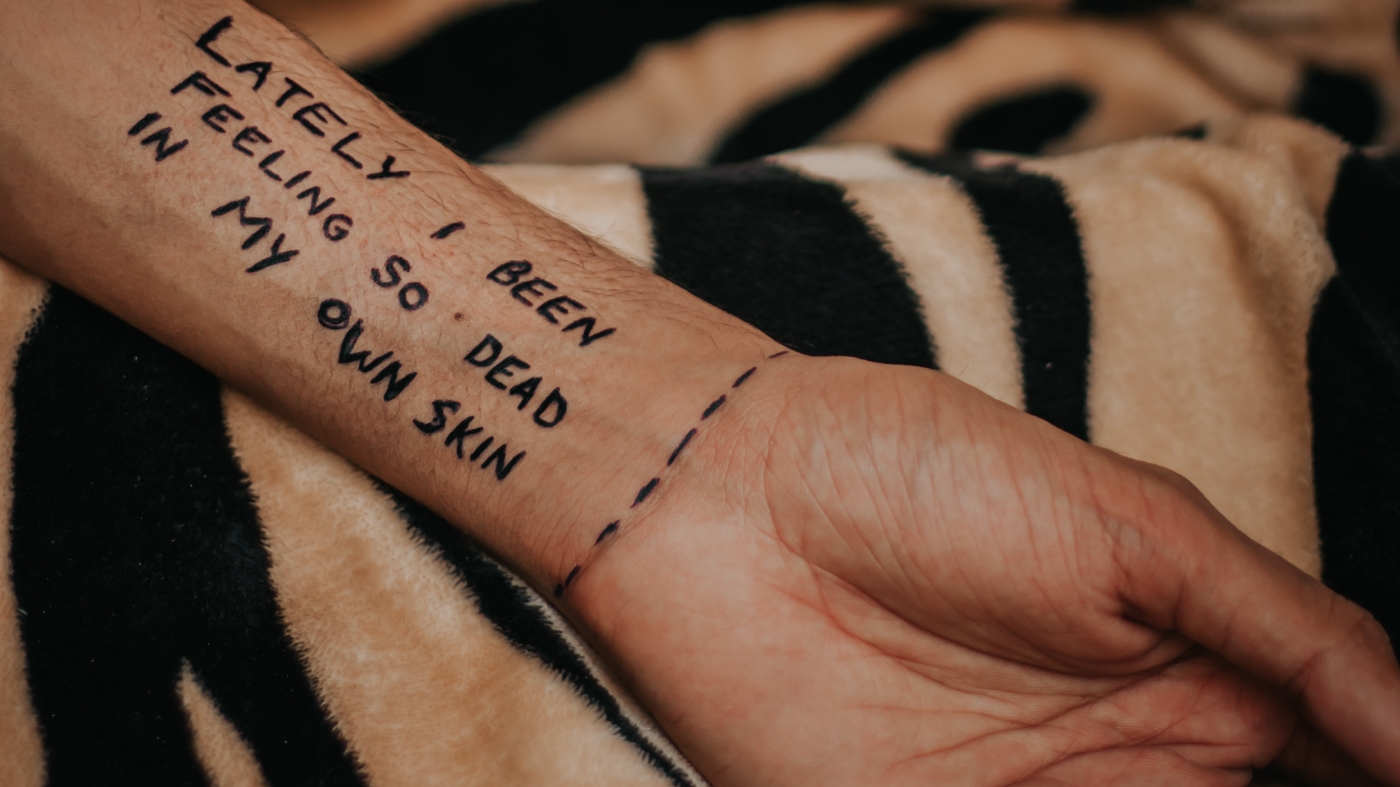 LATELY I BEEN
FEELING SO DEAD
IN MY OWN SKIN